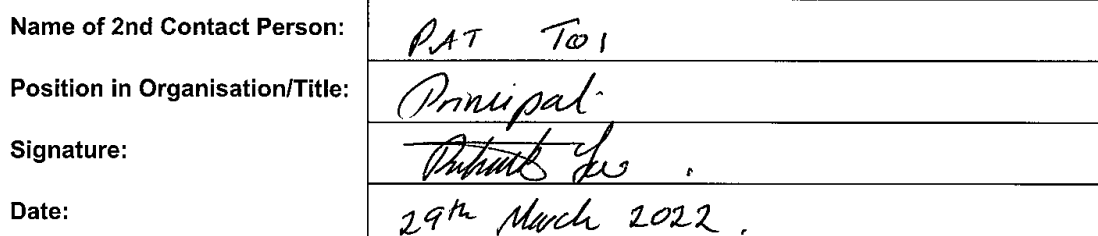 Name of 2nd Contact Person: PAT TOI
Position in Organisation/Title: Principal
Signature:
Date: 29th March 2022.